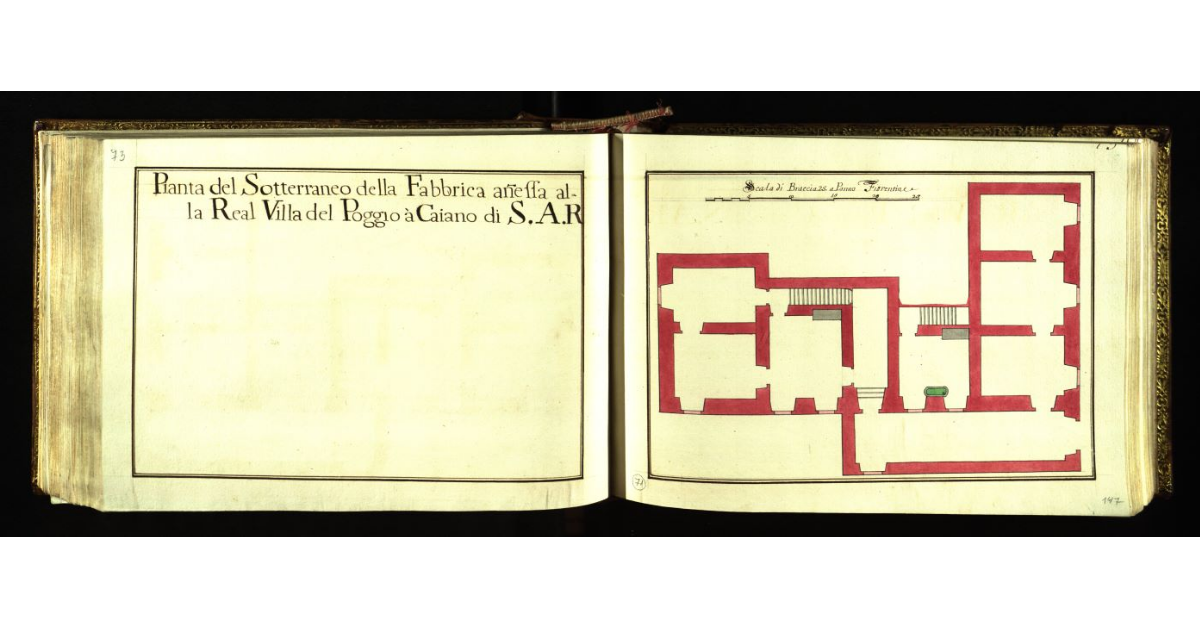 73
Pianta del Sotterraneo della Fabbrica añessa al-
la Real Villa del Poggio à Caiano di S.A.R
Scala di Braccia 25 a Panno Fiorentine
5 10 15 20 25
74
147